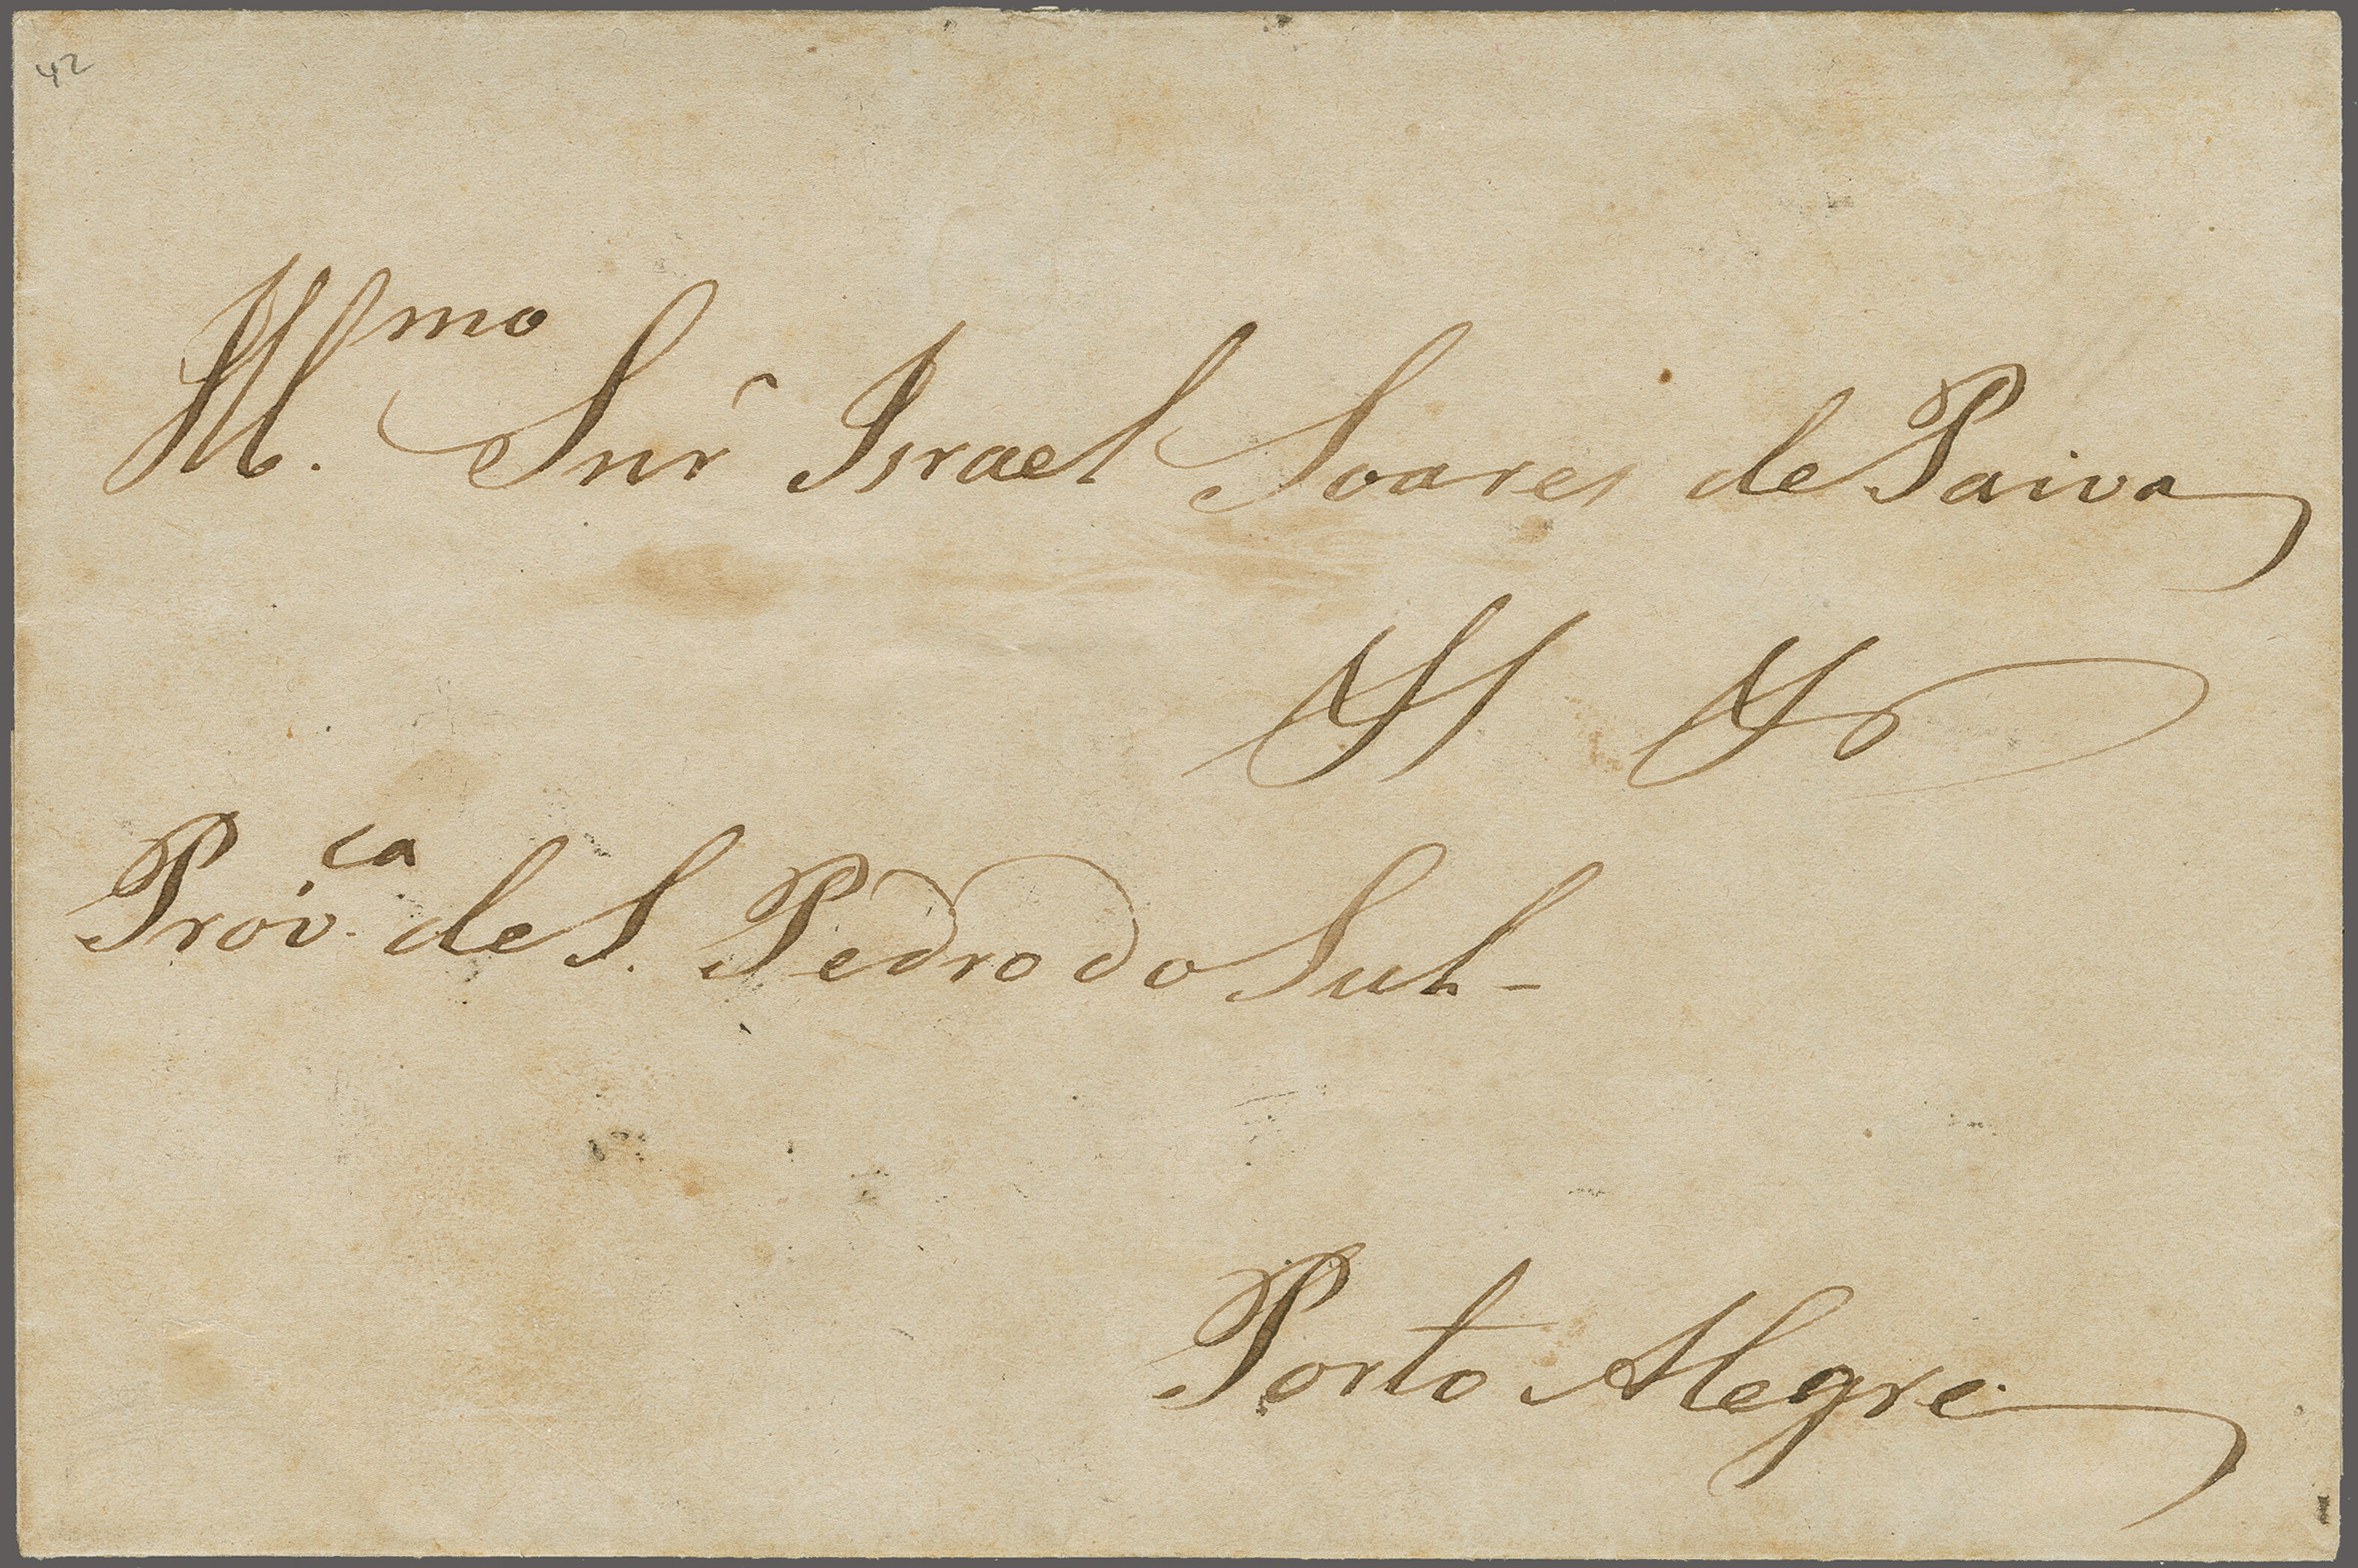 42
Ill.mo Snr Israel Soares de Paiva
Prov.ca de S. Pedro do Sul -
Porto Alegre